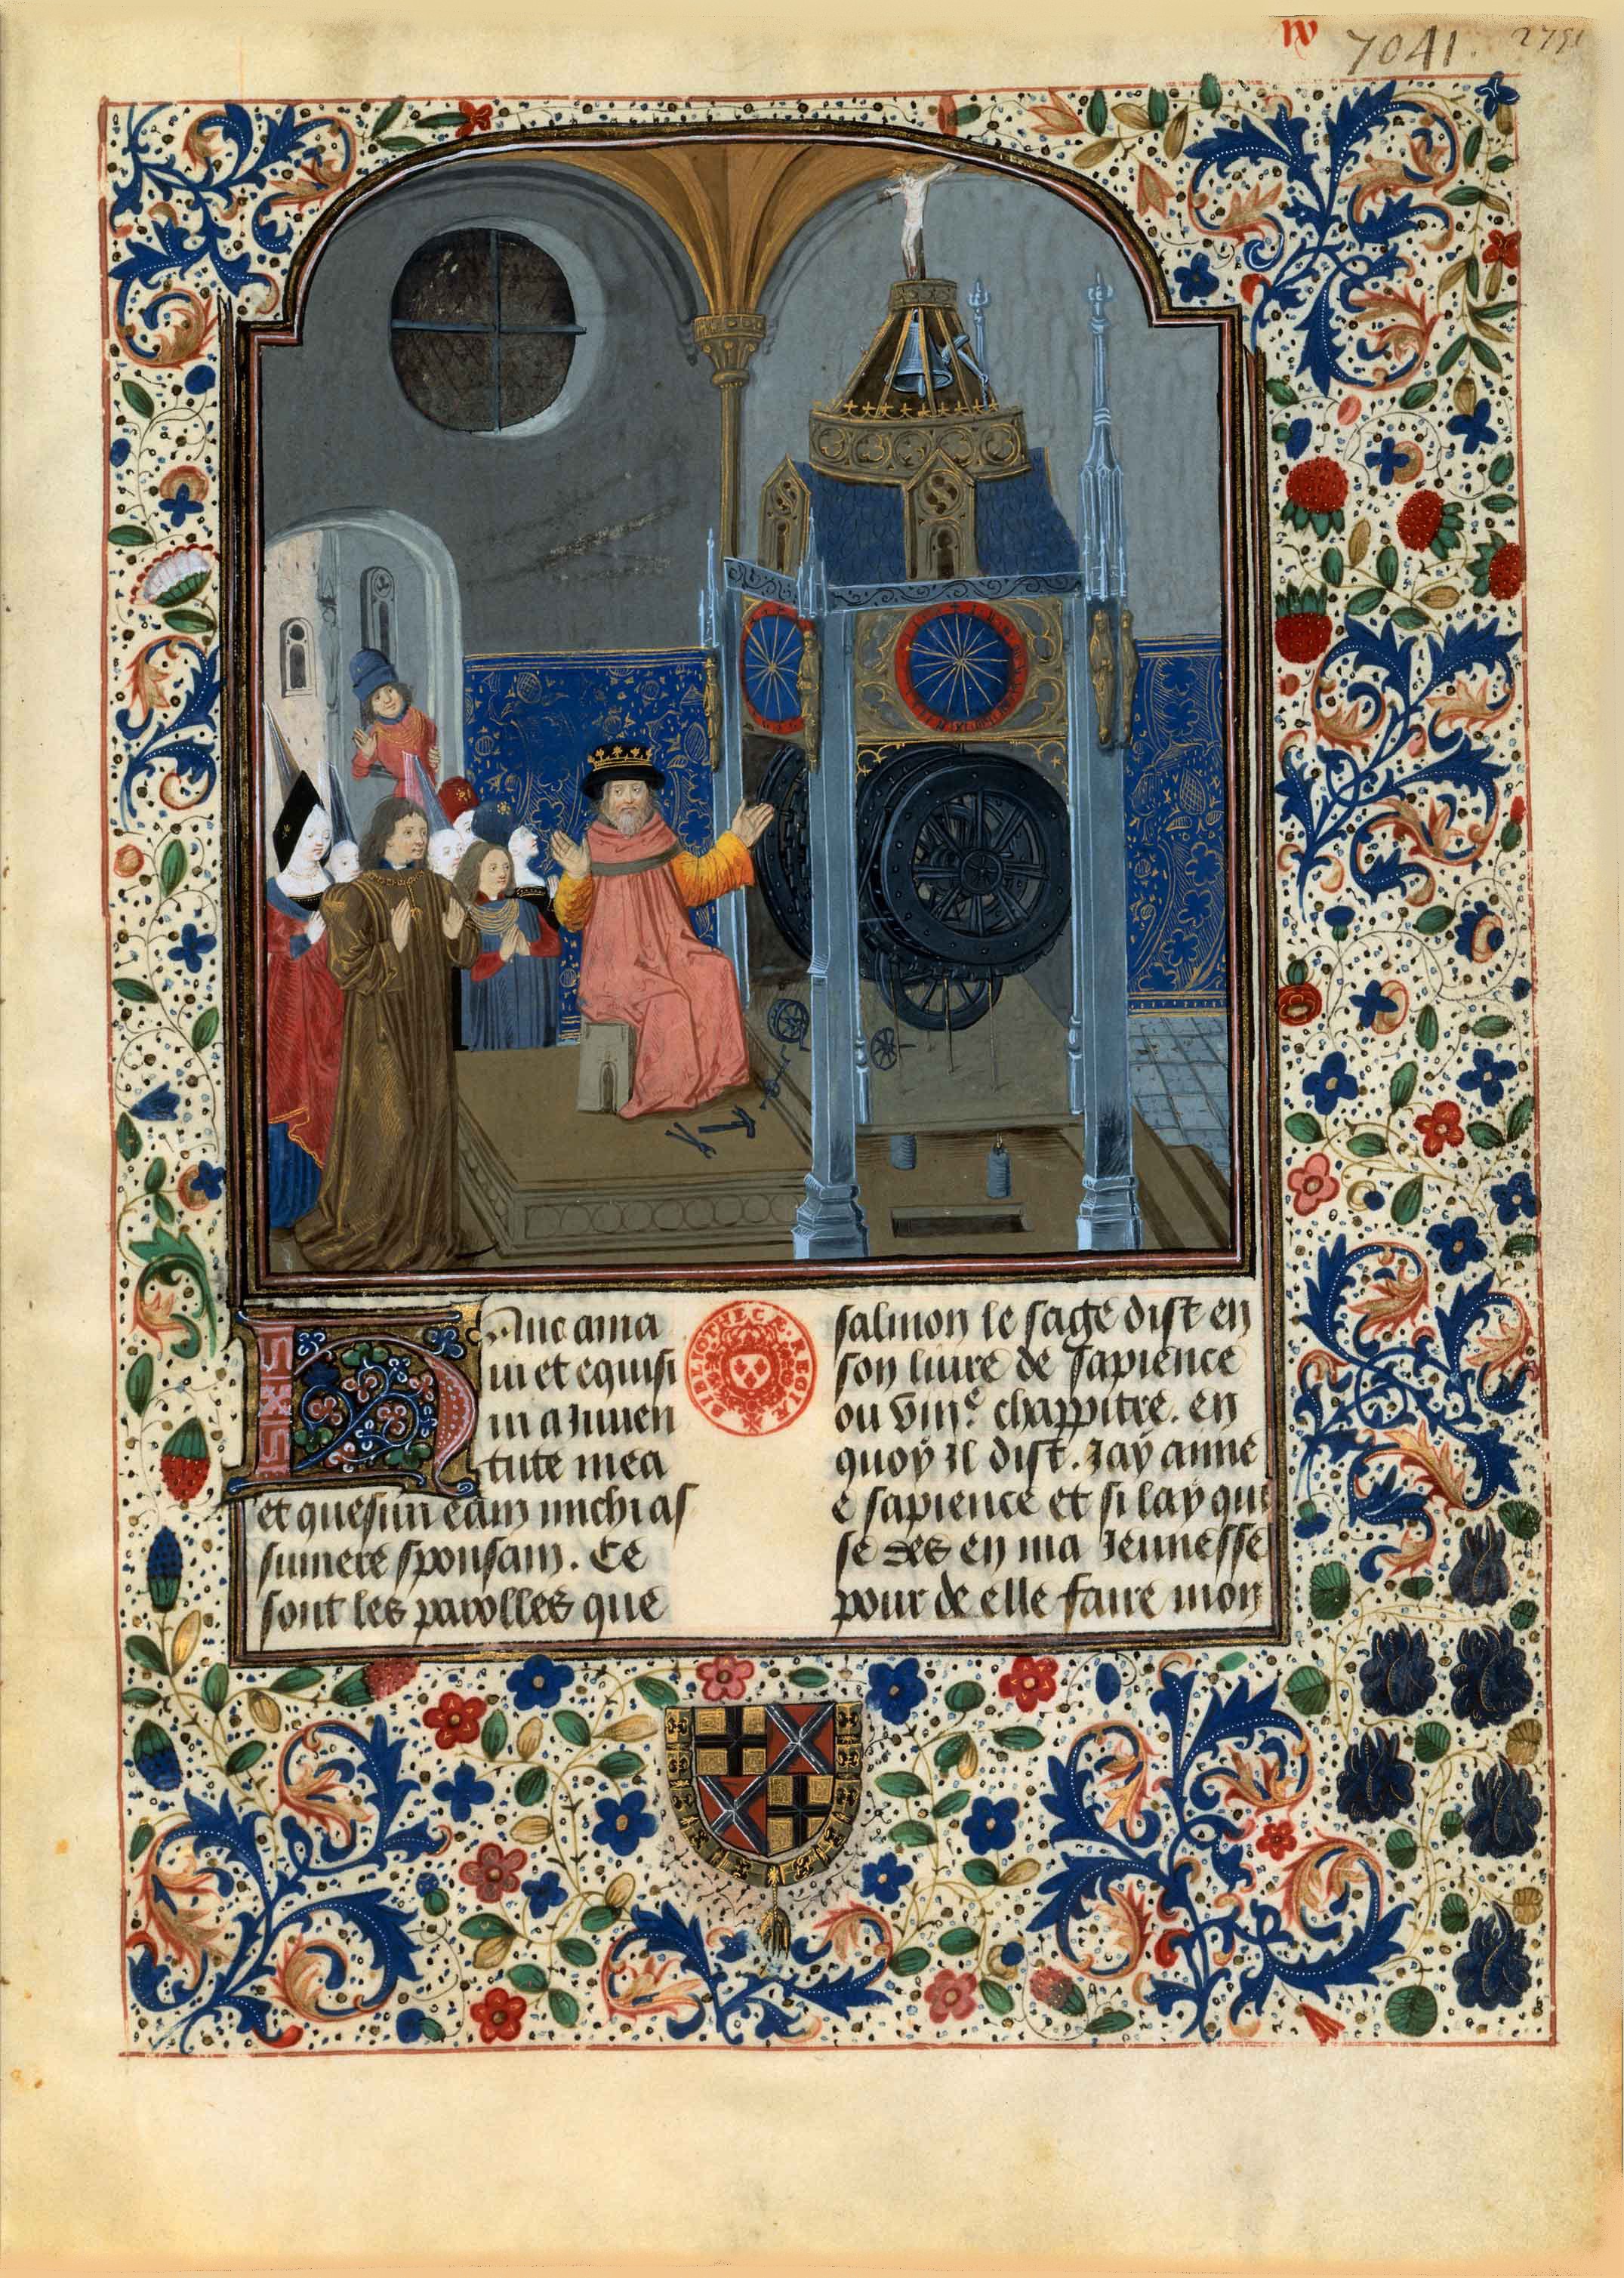 IV
7041.
Anc ama
ui et equisi
ui a iuuen
tute mea
et quesiui eam michi as
sumere sponsam. Ce
sont les parolles que
BIBLIOTHECÆ REGIÆ
salmon le sage dist en
son liure de sapience
ou viii.e chappitre. en
quoy il dist. Jay aime
e sapience et si lay qui
se des en ma Jeunesse
pour de elle faire mon